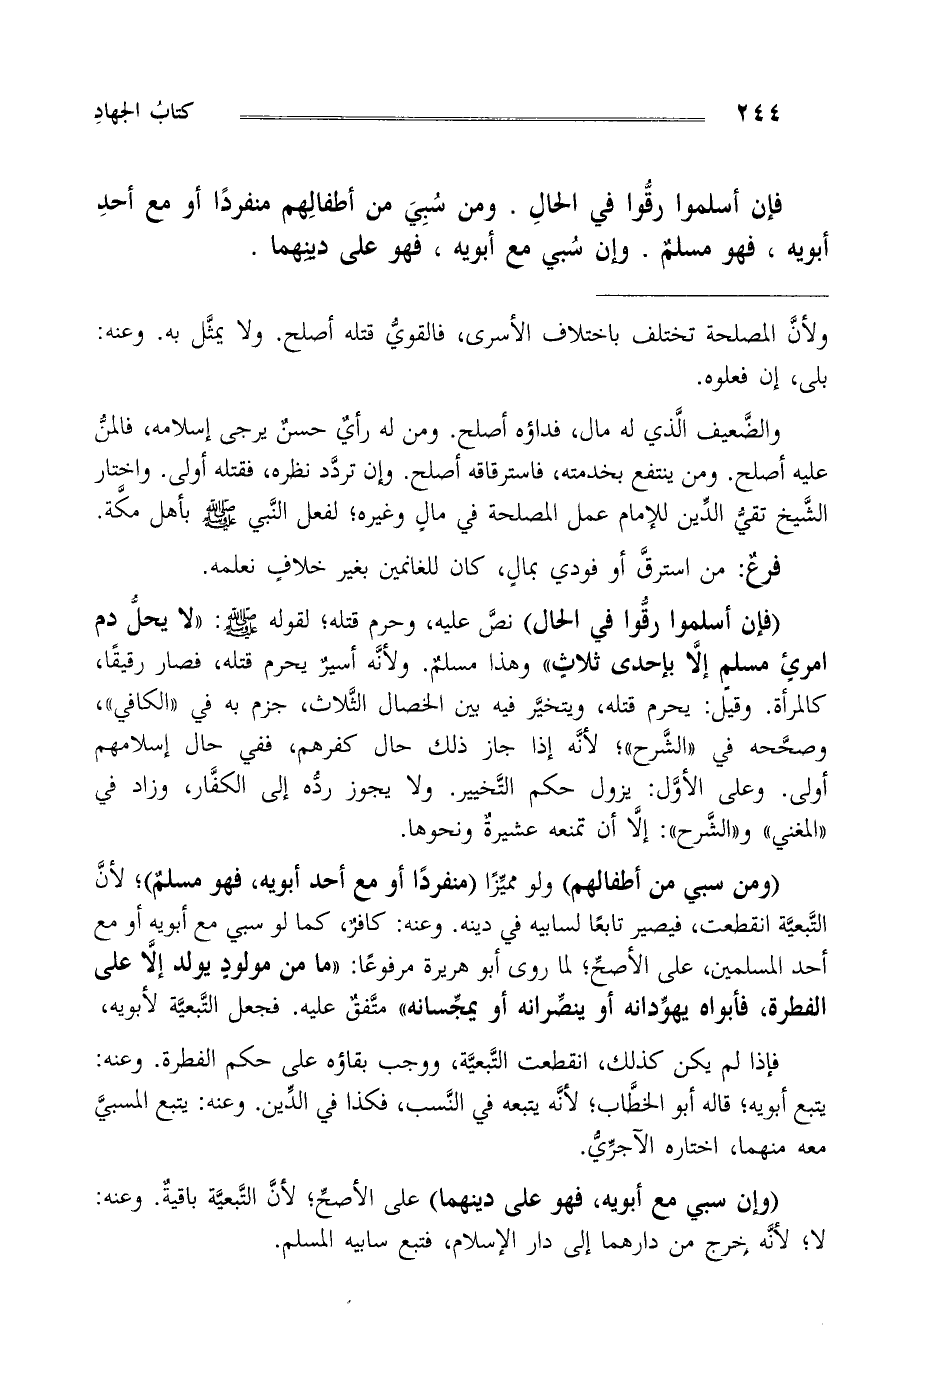 ٢٤٤ كتابُ الجهادِ
فإن أسلموا رقُّوا في الحالِ . ومن سُبِيَ من أطفالِهم منفردًا أو مع أحدِ
أبويه ، فهو مسلمٌ . وإن سُبي مع أبويه ، فهو على دينِهما .
ولأنَّ المصلحة تختلف باختلاف الأسرى، فالقويُّ قتله أصلح. ولا يمثَّل به. وعنه:
بلى، إن فعلوه.
والضَّعيف الَّذي له مال، فداؤه أصلح. ومن له رأيٌ حسنٌ يرجى إسلامه، فالمنُّ
عليه أصلح. ومن ينتفع بخدمته، فاسترقاقه أصلح. وإن تردَّد نظره، فقتله أولى. واختار
الشَّيخ تقيُّ الدِّين للإمام عمل المصلحة في مالٍ وغيره؛ لفعل النَّبي ﷺ بأهل مكَّة.
فرعٌ: من استرقَّ أو فودي بمالٍ، كان للغانمين بغير خلافٍ نعلمه.
(فإن أسلموا رقُّوا في الحال) نصَّ عليه، وحرم قتله؛ لقوله ﷺ: «لا يحلُّ دم
امرئٍ مسلمٍ إلَّا بإحدى ثلاثٍ» وهذا مسلمٌ. ولأنَّه أسيرٌ يحرم قتله، فصار رقيقًا،
كالمرأة. وقيل: يحرم قتله، ويتخيَّر فيه بين الخصال الثَّلاث، جزم به في «الكافي»،
وصحَّحه في «الشَّرح»؛ لأنَّه إذا جاز ذلك حال كفرهم، ففي حال إسلامهم
أولى. وعلى الأوَّل: يزول حكم التَّخيير. ولا يجوز ردُّه إلى الكفَّار، وزاد في
«المغني» و«الشَّرح»: إلَّا أن تمنعه عشيرةٌ ونحوها.
(ومن سبي من أطفالهم) ولو مميِّزًا (منفردًا أو مع أحد أبويه، فهو مسلمٌ)؛ لأنَّ
التَّبعيَّة انقطعت، فيصير تابعًا لسابيه في دينه. وعنه: كافرٌ، كما لو سبي مع أبويه أو مع
أحد المسلمين، على الأصحِّ؛ لما روى أبو هريرة مرفوعًا: «ما من مولودٍ يولد إلَّا على
الفطرة، فأبواه يهوِّدانه أو ينصِّرانه أو يمجِّسانه» متَّفقٌ عليه. فجعل التَّبعيَّة لأبويه،
فإذا لم يكن كذلك، انقطعت التَّبعيَّة، ووجب بقاؤه على حكم الفطرة. وعنه:
يتبع أبويه؛ قاله أبو الخطَّاب؛ لأنَّه يتبعه في النَّسب، فكذا في الدِّين. وعنه: يتبع المسبيَّ
معه منهما، اختاره الآجرِّيُّ.
(وإن سبي مع أبويه، فهو على دينهما) على الأصحِّ؛ لأنَّ التَّبعيَّة باقيةٌ. وعنه:
لا؛ لأنَّه خرج من دارهما إلى دار الإسلام، فتبع سابيه المسلم.